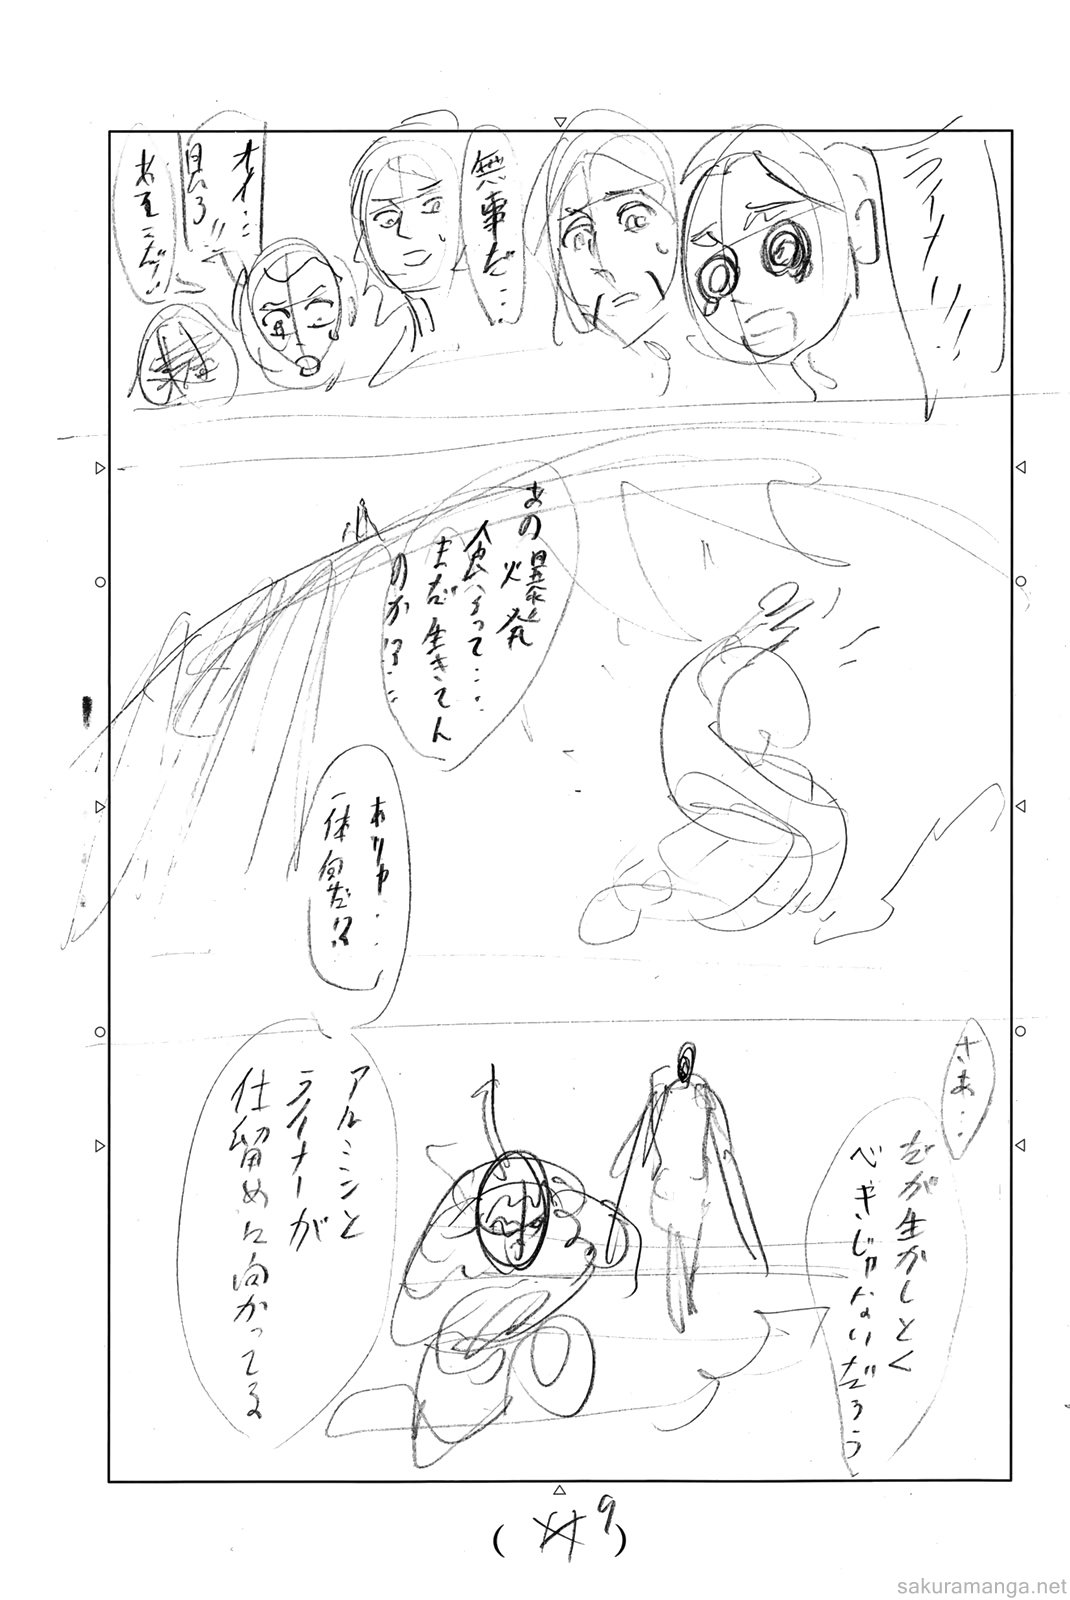 ライナー!!
無事だ…
オイ…
見ろ!!
あそこだ!!
あの爆発
食らって…
まだ生きてん
のか!?…
ありゃ…
一体何だ!?
さぁ…
だが生かしとく
べきじゃないだろう
アルミンと
ライナーが
仕留めに向かってる
(9)
sakuramanga.net